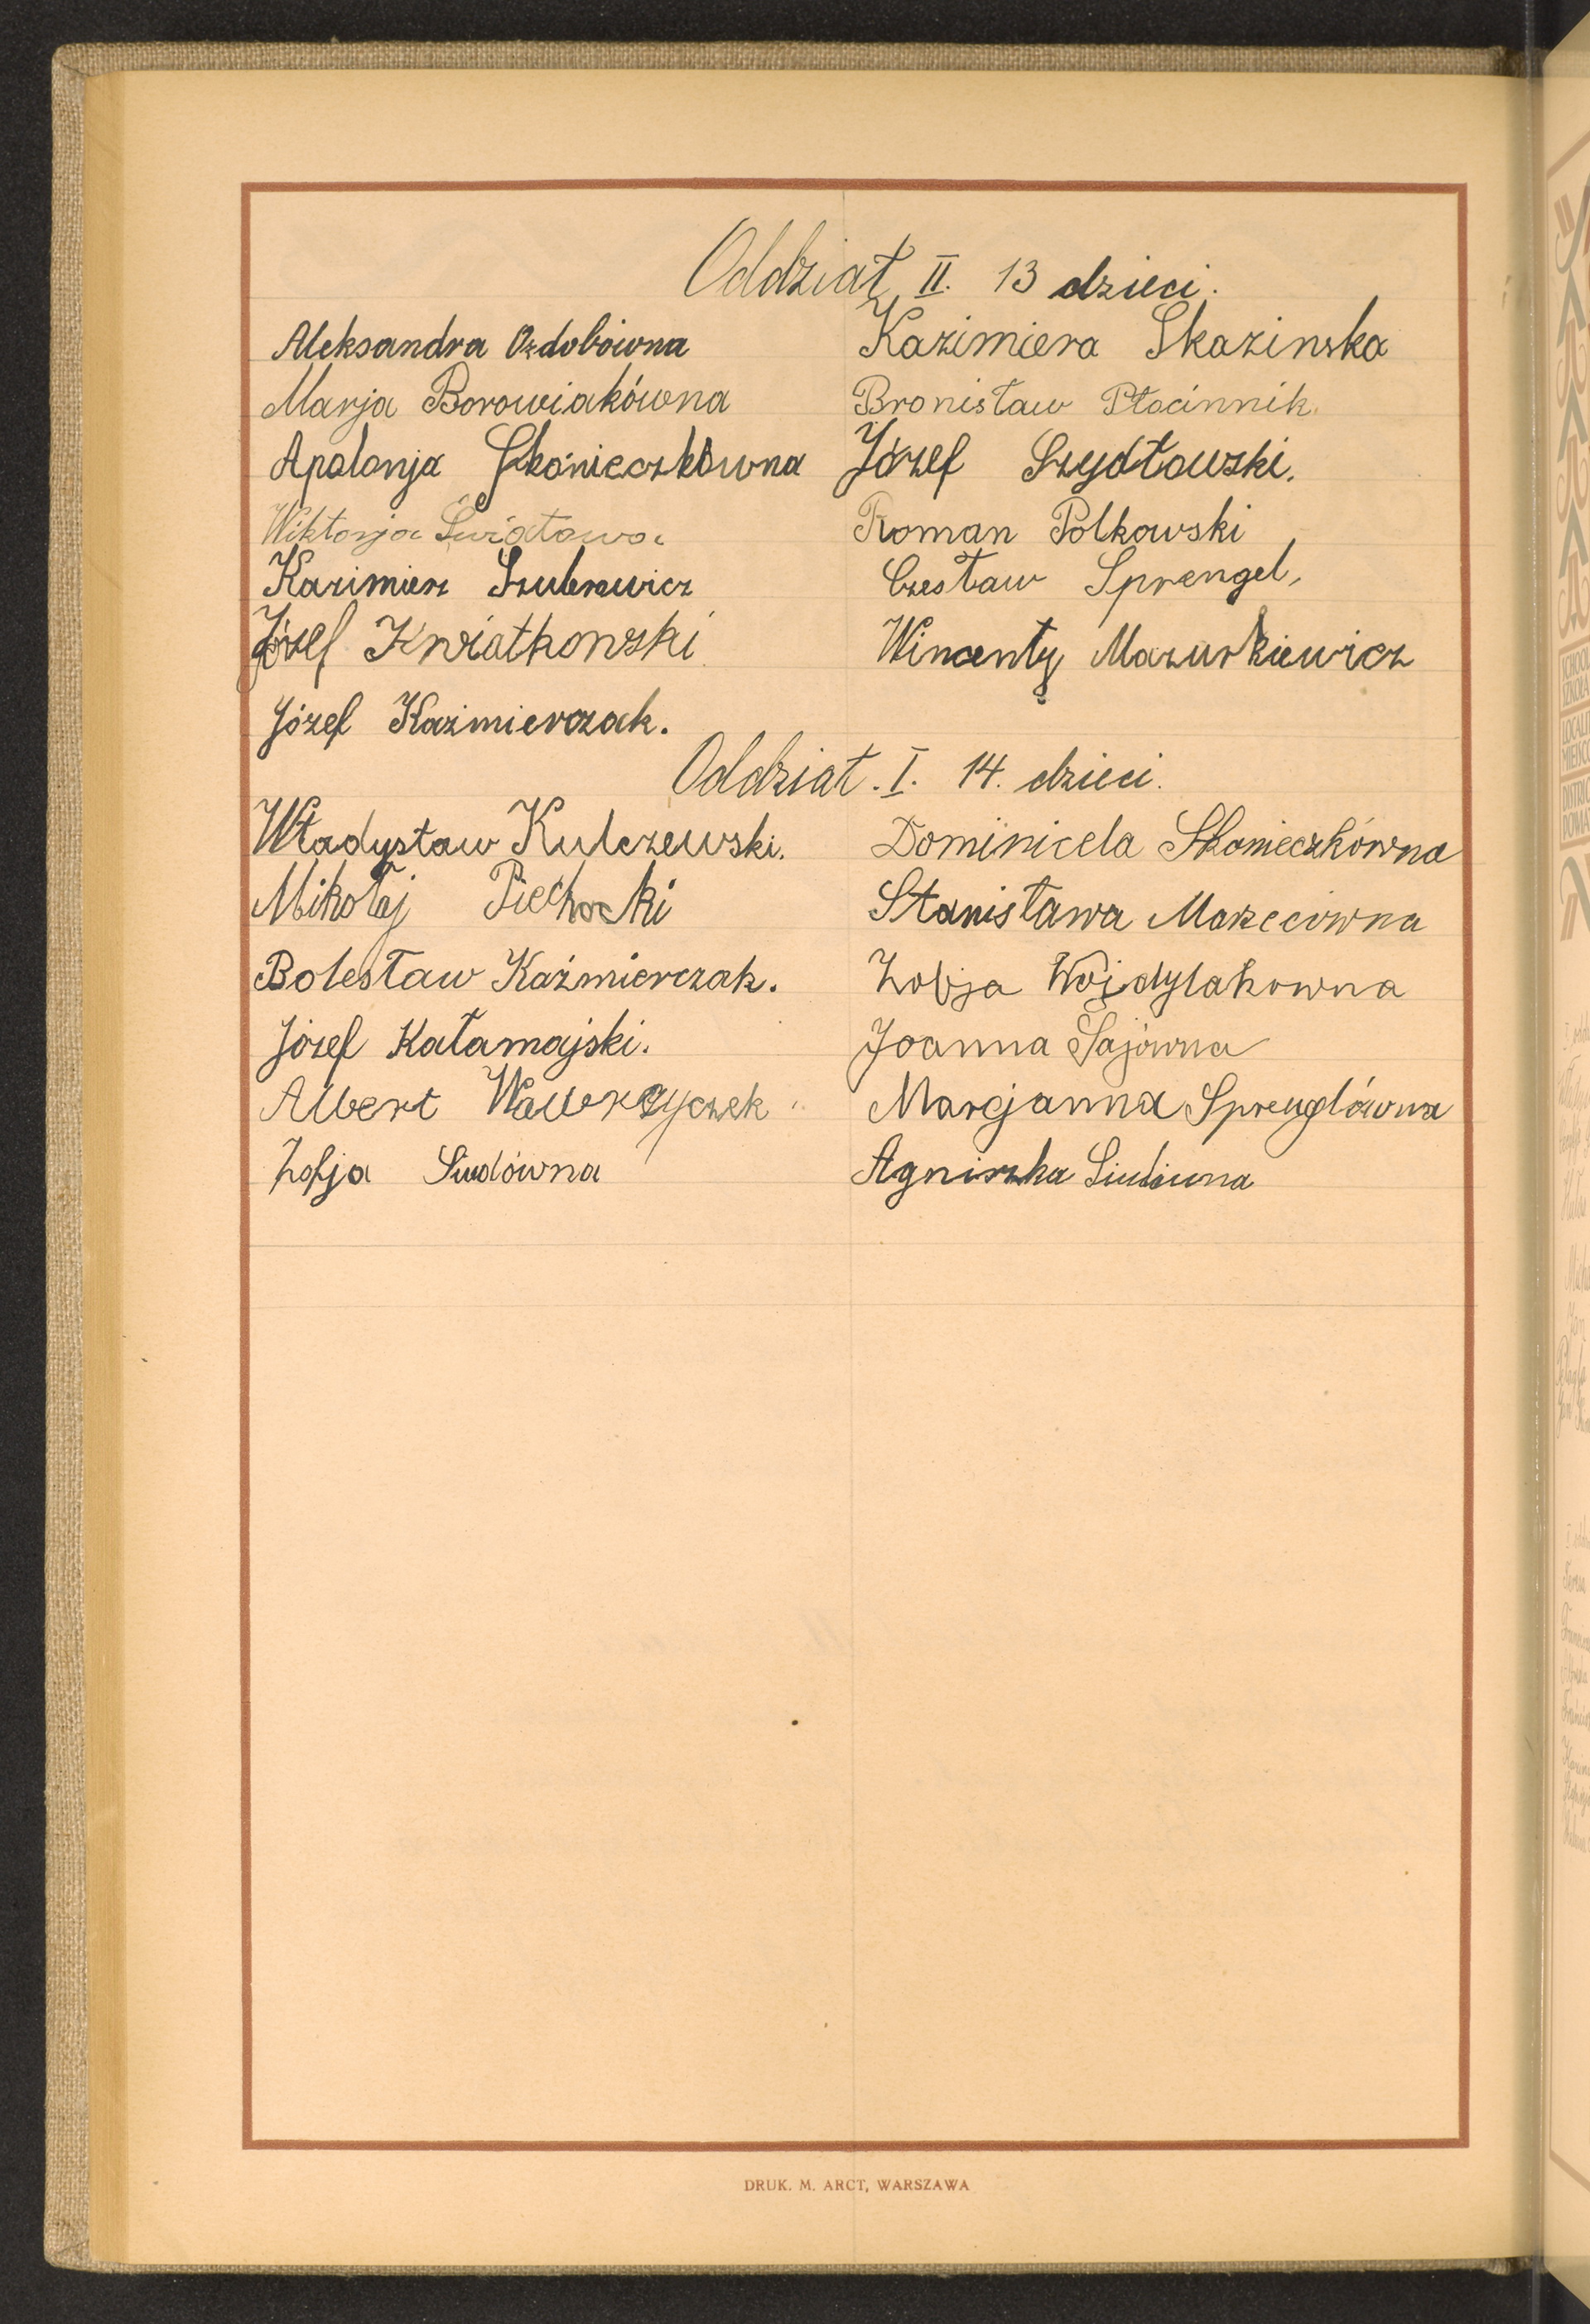 Oddział II. 13 dzieci.
Aleksandra Ozdobówna
Marja Borowiakówna
Apolonja Skonieczkówna
Wiktorja Światowa
Kazimierz Szulerawicz
Józef Kwiatkowski
Józef Kaźmierczak.
Kazimiera Skazinska
Bronisław Płócinnik.
Józef Szydłowski.
Roman Polkowski
Czesław Sprengel,
Wincenty Mazurkiewicz
Oddział. I. 14. dzieci.
Władysław Kulczewski.
Mikołaj Piechocki
Bolesław Kaźmierczak.
Józef Katamajski.
Albert Wawrzyczek
Zofja Siudówna
Dominicela Skonieczkówna
Stanisława Marzecówna
Zofja Wojdylakowna
Joanna Sajówna
Marcjanna Spreuglówna
Agniszka Siudówna
DRUK. M. ARCT, WARSZAWA